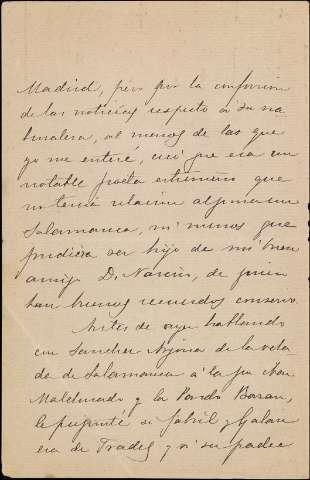 Madrid, pero por la confusion
de las noticias respecto á su na
turaleza, al menos de las que
yo me enteré, creí que era un
notable poeta extremeño que
no tenia relacion alguna con
Salamanca, ni menos que
pudiera ser hijo de mi buen
amigo D. Narciso, de quien
tan buenos recuerdos conservo
Antes de ayer hablando
con Sanchez Arjona de la vela
da de Salamanca á la que iban
Maldonado y la Pardo Bazan,
le pregunté si Gabriel y Galan
era de Frades y si su padre